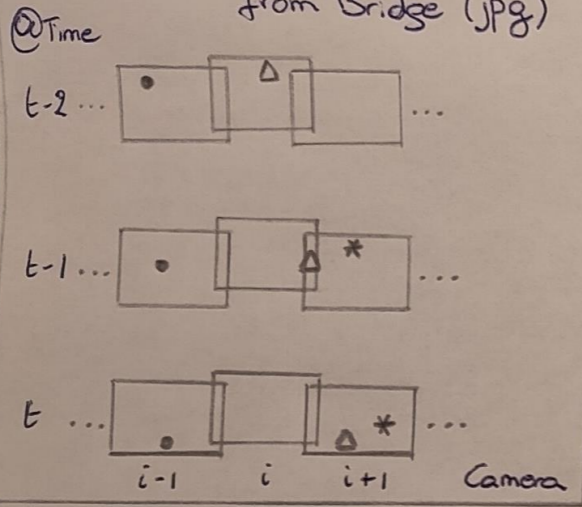 from Bridge (jpg)
@Time
t-2 ... ...
t-1 ... * ...
t ... * ...
i-1 i i+1 Camera